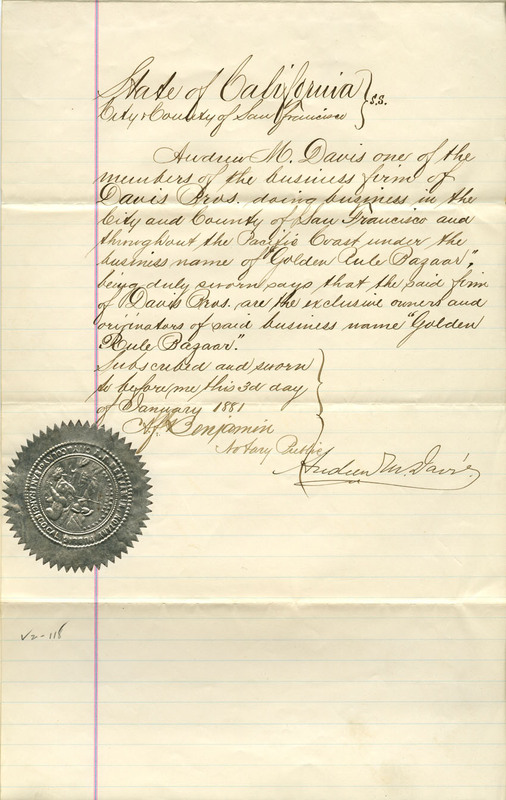 State of California } S.S.
City & County of San Francisco
Andrew M. Davis one of the
members of the business firm of
Davis Bros. doing business in the
City and County of San Francisco and
throughout the Pacific Coast under the
business name of "Golden Rule Bazaar",
being duly sworn says that the said firm
of Davis Bros. are the exclusive owners and
originators of said business name "Golden
Rule Bazaar".
Subscribed and sworn
to before me this 3d day
of January 1881
Benjamin
Notary Public
Andrew M. Davis
V2-118